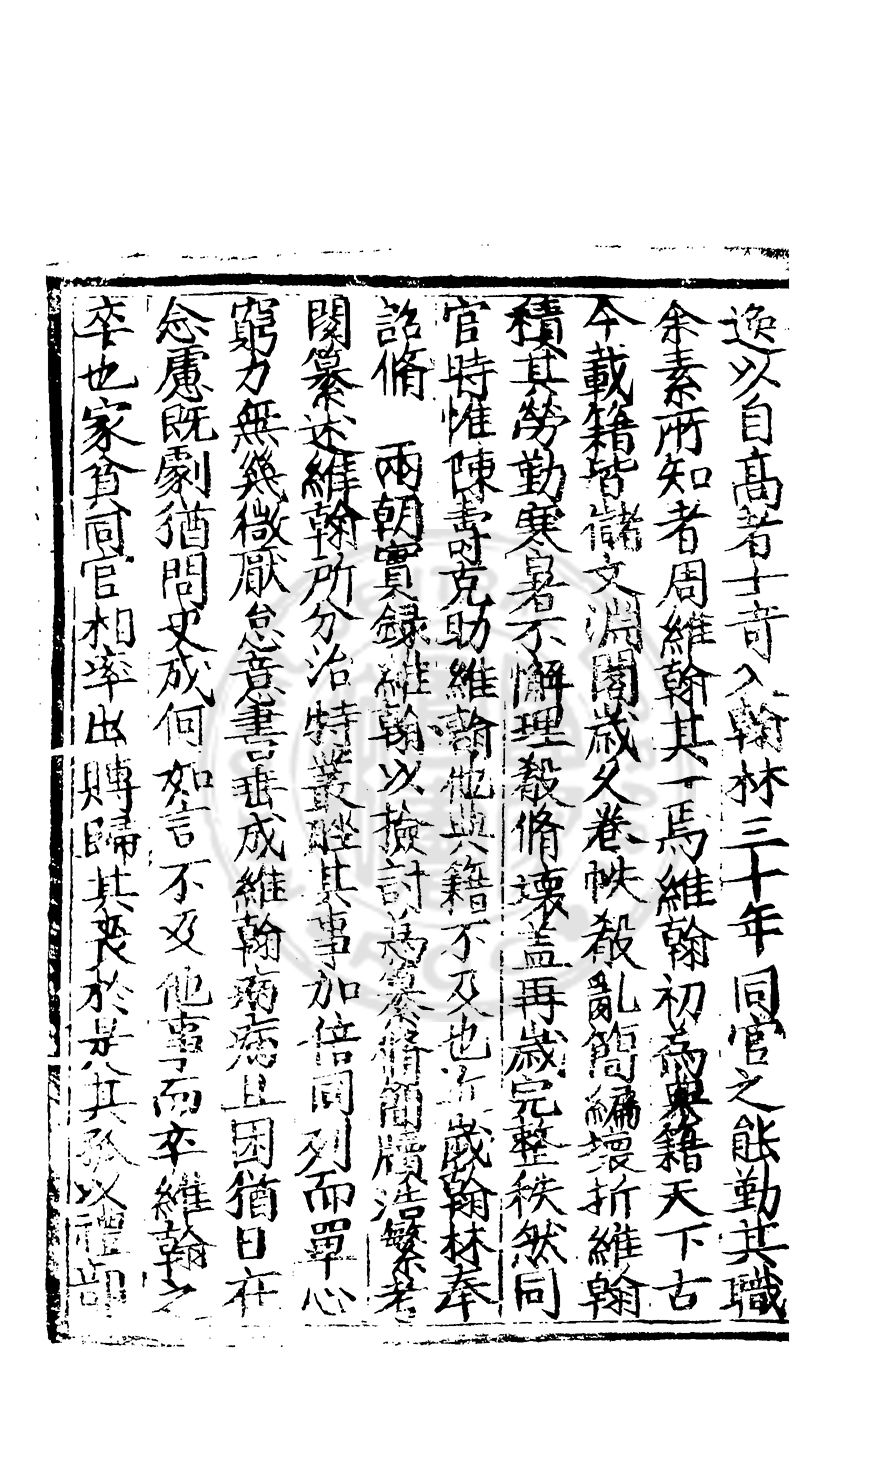 逸以自高者士奇入翰林三十年同官之能勤其職
余素所知者周維翰其一焉維翰初為典籍天下古
今載籍皆儲文淵閣歲久卷帙殽亂簡編壞折維翰
積其勞勤寒暑不懈理殽脩壞盖再歲完整秩然同
官時惟陳壽克助維翰他典籍不及也近歲翰林奉
詔脩 兩朝實録維翰以檢討為纂脩簡牘浩繁考
閱纂述維翰所分治特叢脞其事加倍同列而單心
窮力無幾微厭怠意書垂成維翰病病且困猶日在
念慮既劇猶問史成何如言不及他事而卒維翰之
卒也家貧同官相率出賻歸其喪於是其孤以禮部